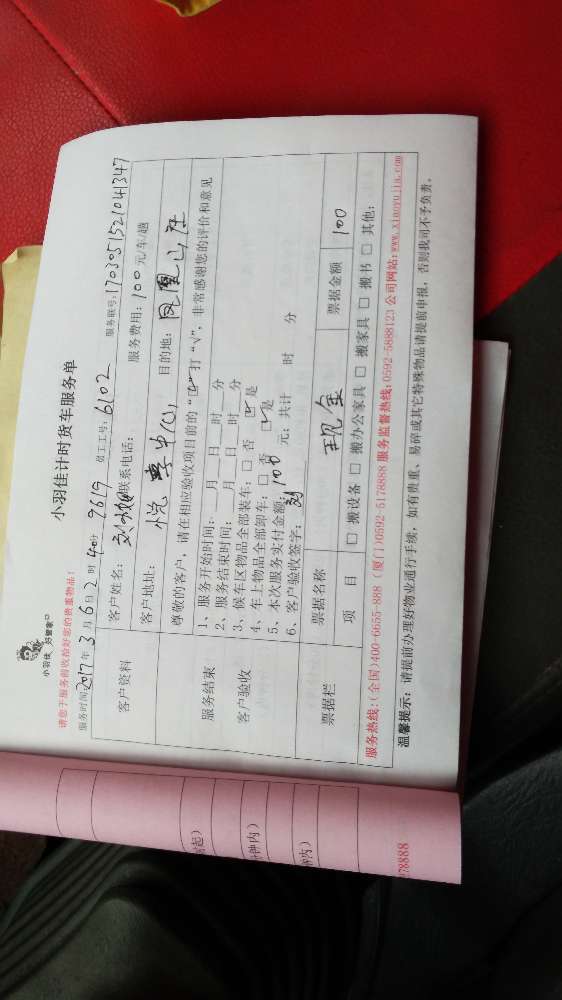 小羽佳 好管家
小羽佳计时货车服务单
请您于服务前收拾好您的贵重物品！
服务时间2017年3月6日2时40分 9619 员工工号：6102 服务联号：17030515221041347
客户资料
客户姓名： 联系电话： 服务费用：100元/车/趟
客户地址：悦 中心 目的地：凤凰山庄
服务结束
客户验收
尊敬的客户，请在相应验收项目前的“☑”打“√”，非常感谢您的评价和意见
1、服务开始时间： 月 日 时 分
2、服务结束时间： 月 日 时 分
3、候车区物品全部装车：□ 否 ☑ 是
4、车上物品全部卸车：□ 否 ☑ 是
5、本次服务实付金额：100 元；共计 时 分
6、客户验收签字：
票据栏
票据名称 现金 票据金额 100
项 目 □ 搬设备 □ 搬办公家具 □ 搬家具 □ 搬书 □ 其他：
服务热线：(全国)400-6655-888 (厦门)0592-5178888 服务监督热线：0592-5888123 公司网站：www.xiaoyujia.com
温馨提示：请提前办理好物业通行手续，如有贵重、易碎或其它特殊物品请提前申报，否则我司不予负责。
起）
钟内）
内）
78888